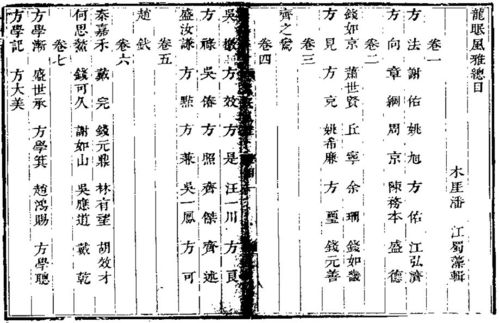 龍眠風雅總目
木厓潘 江蜀藻輯
卷一
方 法 謝 佑 姚 旭 方 佑 江弘濟
方 向 章 綱 周 京 陳務本 盛 德
卷二
錢如京 蕭世賢 丘 寧 余 珊 錢如畿
方 見 方 克 姚希廉 方 璽 錢元善
卷三
齊之鸞
卷四
吳 檄 方 效 方 是 汪一川 方
方 吳 方 照 齊 傑 齊 述
盛汝謙 方 點 方 兼 吳一鳳 方 可
卷五
趙 釴
卷六
秦嘉禾 戴 完 錢元鼎 林有望 胡效才
何思鰲 錢可久 謝如山 吳應道 戴 乾
卷七
方學漸 盛世承 方學箕 趙鴻賜 方學聰
方學記 方大美